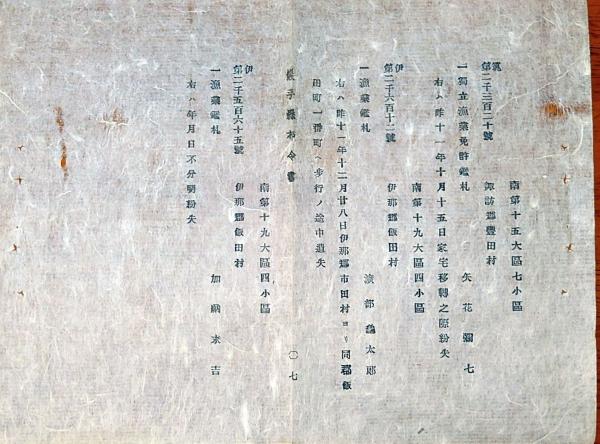 南第十五大區七小區
筑第二千三百二十號
諏訪郡豊田村
一獨立漁業免許鑑札
矢花彌七
右ハ昨十一年十月十五日家宅移轉之際紛失
南第十九大區四小區
伊第二千六百十二號
伊那郡飯田村
一漁業鑑札
渡部龜太郎
右ハ昨十一年十二月廿八日伊那郡市田村ヨリ同郡飯
田町一番町ヘ歩行ノ途中遺失
布令書
〇七
南第十九大區四小區
伊第二千五百六十五號
伊那郡飯田村
一漁業鑑札
加納末吉
右ハ年月日不分明紛失